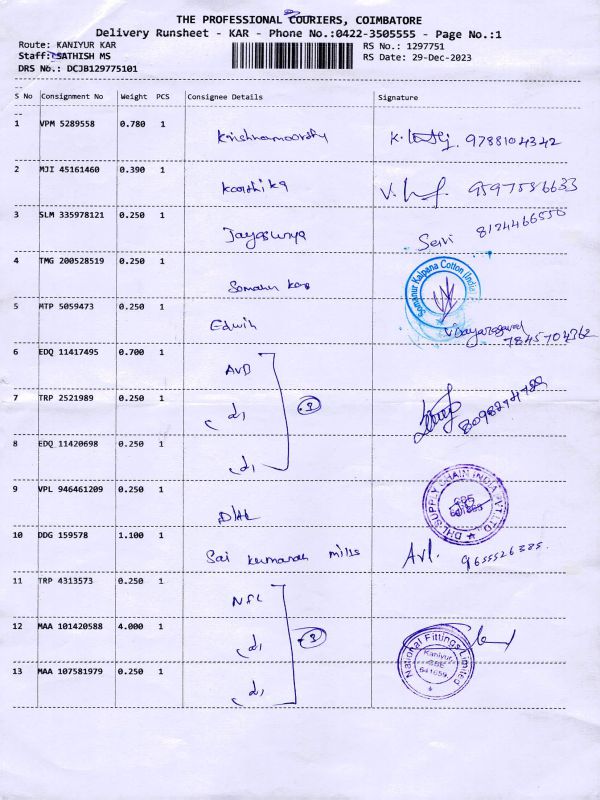 THE PROFESSIONAL COURIERS, COIMBATORE
Delivery Runsheet - KAR - Phone No.:0422-3505555 - Page No.:1
Route: KANIYUR KAR
RS No.: 1297751
Staff: SATHISH MS
RS Date: 29-Dec-2023
DRS No.: DCJB129775101
S No Consignment No Weight PCS Consignee Details Signature
1 VPM 5289558 0.780 1 Krishnamoorthy 9788104342
2 MJI 45161460 0.390 1 Karthika 9597586633
3 SLM 335978121 0.250 1 Jayasurya Selvi 8124466550
4 TMG 200528519 0.250 1 Somanur Kalpana Cotton (India)
5 MTP 5059473 0.250 1 Edwin Vijayaragavan 7845704362
6 EDQ 11417495 0.700 1 AVD
7 TRP 2521989 0.250 1 di
8 EDQ 11420698 0.250 1 di
9 VPL 946461209 0.250 1 DHL DHL SUPPLY CHAIN INDIA PVT. LTD.
10 DDG 159578 1.100 1 Sai kumaran mills 9655526385.
11 TRP 4313573 0.250 1 NFL
12 MAA 101420588 4.000 1 di National Fittings Limited
Kaniyur,
CBE
641659.
13 MAA 107581979 0.250 1 di